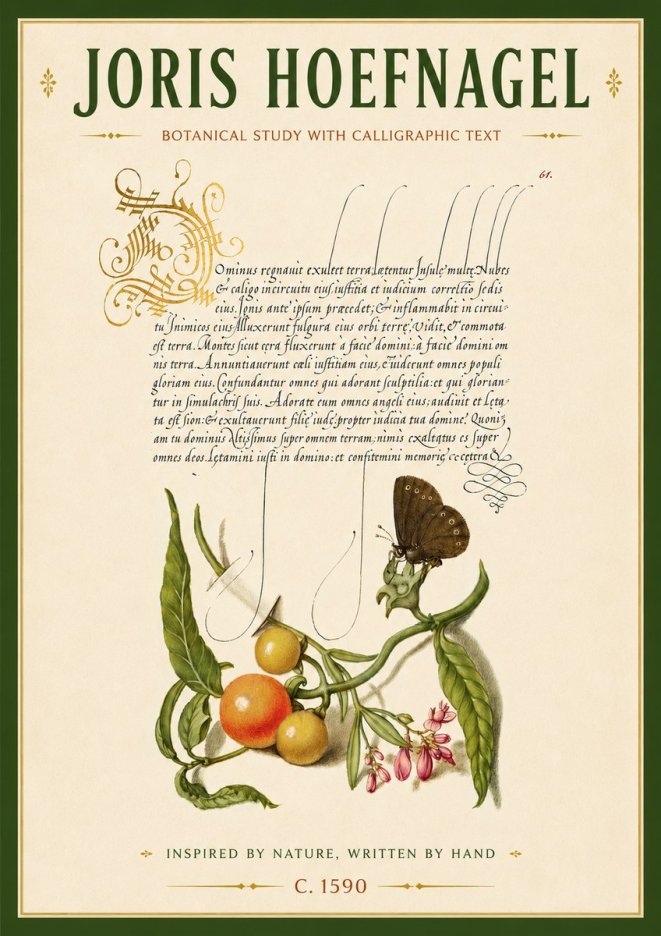 JORIS HOEFNAGEL
BOTANICAL STUDY WITH CALLIGRAPHIC TEXT
61.
DOminus regnauit exulcet terra lætentur Insule multe. Nubes
& caligo in circuitu eius iustitia et iudicium correctio sedis
eius. Ignis ante ipsum præcedet; & inflammabit in circui-
tu Inimicos eius Alluxerunt fulgura eius orbi terre; vidit, & commota
est terra. Montes sicut cera fluxerunt à facie domini: à facie domini om
nis terra. Annuntiauerunt cœli iustitiam eius, & uiderunt omnes populi
gloriam eius. Confundantur omnes qui adorant sculptilia: et qui glorian-
tur in simulachris suis. Adorate eum omnes angeli eius; audinit et Leta
ta est sion: & exultauerunt filie iude, propter iudicia tua domine. Quoni
am tu dominus Altissimus super omnem terram; nimis exaltatus es super
omnes deos. Letamini iusti in domino: et confitemini memorie &
INSPIRED BY NATURE, WRITTEN BY HAND
C. 1590